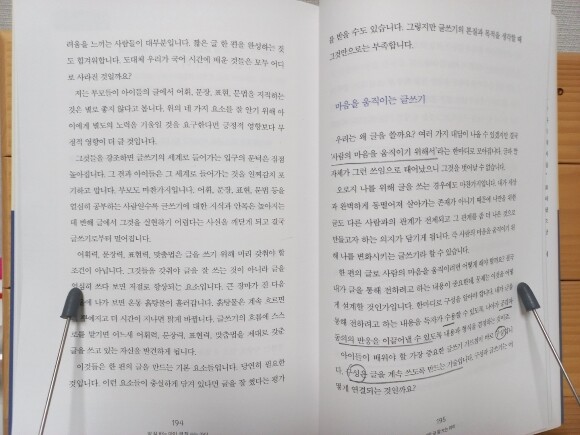 려움을 느끼는 사람들이 대부분입니다. 짧은 글 한 편을 완성하는 것
도 힘겨워합니다. 도대체 우리가 국어 시간에 배운 것들은 모두 어디
로 사라진 것일까요?
저는 부모들이 아이들의 글에서 어휘, 문장, 표현, 문법을 지적하는
것은 별로 좋지 않다고 봅니다. 위의 네 가지 요소를 잘 안기 위해 아
이에게 별도의 노력을 기울일 것을 요구한다면 긍정적 영향보다 부
정적 영향이 더 클 것입니다.
그것들을 강조하면 글쓰기의 세계로 들어가는 입구의 문턱은 점점
높아집니다. 그 결과 아이들은 그 세계로 들어가는 것을 일찌감치 포
기하고 맙니다. 부모도 마찬가지입니다. 어휘, 문장, 표현, 문법 등을
열심히 공부하는 사람일수록 글쓰기에 대한 지식과 안목은 높아지는
데 반해 글에서 그것을 실현하기 어렵다는 사실을 깨닫게 되고 결국
글쓰기로부터 멀어집니다.
어휘력, 문장력, 표현력, 맞춤법은 글을 쓰기 위해 미리 갖춰야 할
조건이 아닙니다. 그것들을 갖춰야 글을 잘 쓰는 것이 아니라 글을
열심히 쓰다 보면 저절로 향상되는 요소입니다. 큰 장마가 진 다음
에 나가 보면 온통 흙탕물이 흘러갑니다. 흙탕물은 계속 흐르면
고 더 시간이 지나면 맑게 마련입니다. 글쓰기의 흐름에 스스
로를 맡기면 어느새 어휘력, 문장력, 표현력, 맞춤법을 제대로 갖춘
글을 쓰고 있는 자신을 발견하게 됩니다.
이것들은 한 편의 글을 만드는 기본 요소들입니다. 당연히 필요한
것입니다. 이런 요소들이 충실하게 담겨 있다면 글을 잘 썼다는 평가
194
를 받을 수도 있습니다. 그렇지만 글쓰기의 본질과 목적을 생각할 때
그것만으로는 부족합니다.
마음을 움직이는 글쓰기
우리는 왜 글을 쓸까요? 여러 가지 대답이 나올 수 있겠지만 결국
'사람의 마음을 움직이기 위해서'라는 한마디로 모아집니다. 글은
자체가 그런 쓰임으로 태어났으니 그것을 벗어날 수 없습니다.
오로지 나를 위해 글을 쓰는 경우에도 마찬가지입니다. 내가
과 완벽하게 동떨어져 살아가는 존재가 아니기 때문에 나만을 위한
글도 다른 사람과의 관계가 전제되고 그 관계를 좀 더 나은 것으로
만들고자 하는 의지가 담기게 됩니다. 즉 사람의 마음을 움직이기 위
해 나를 변화시키는 글쓰기라 할 수 있습니다.
한 편의 글로 사람의 마음을 움직이려면 어떻게 해야 할까요?
내가 글을 통해 전하려고 하는 내용이 중요한데, 문제는 이것을 어떻
게 설계할 것인가입니다. 한마디로 구성을 잘해야 합니다. 내가 글을
통해 전하려고 하는 내용을 독자가 수용할 수 있도록, 나아가 공감과
동의의 반응을 이끌어낼 수 있도록 내용과 형식을 결정하는
아이들이 배워야 할 가장 중요한 글쓰기 기술은 바로 구성입니
다. 구성은 글을 계속 쓰도록 만드는 기술입니다. 구성과 글쓰기는 어
떻게 연결되는 것일까요?
195